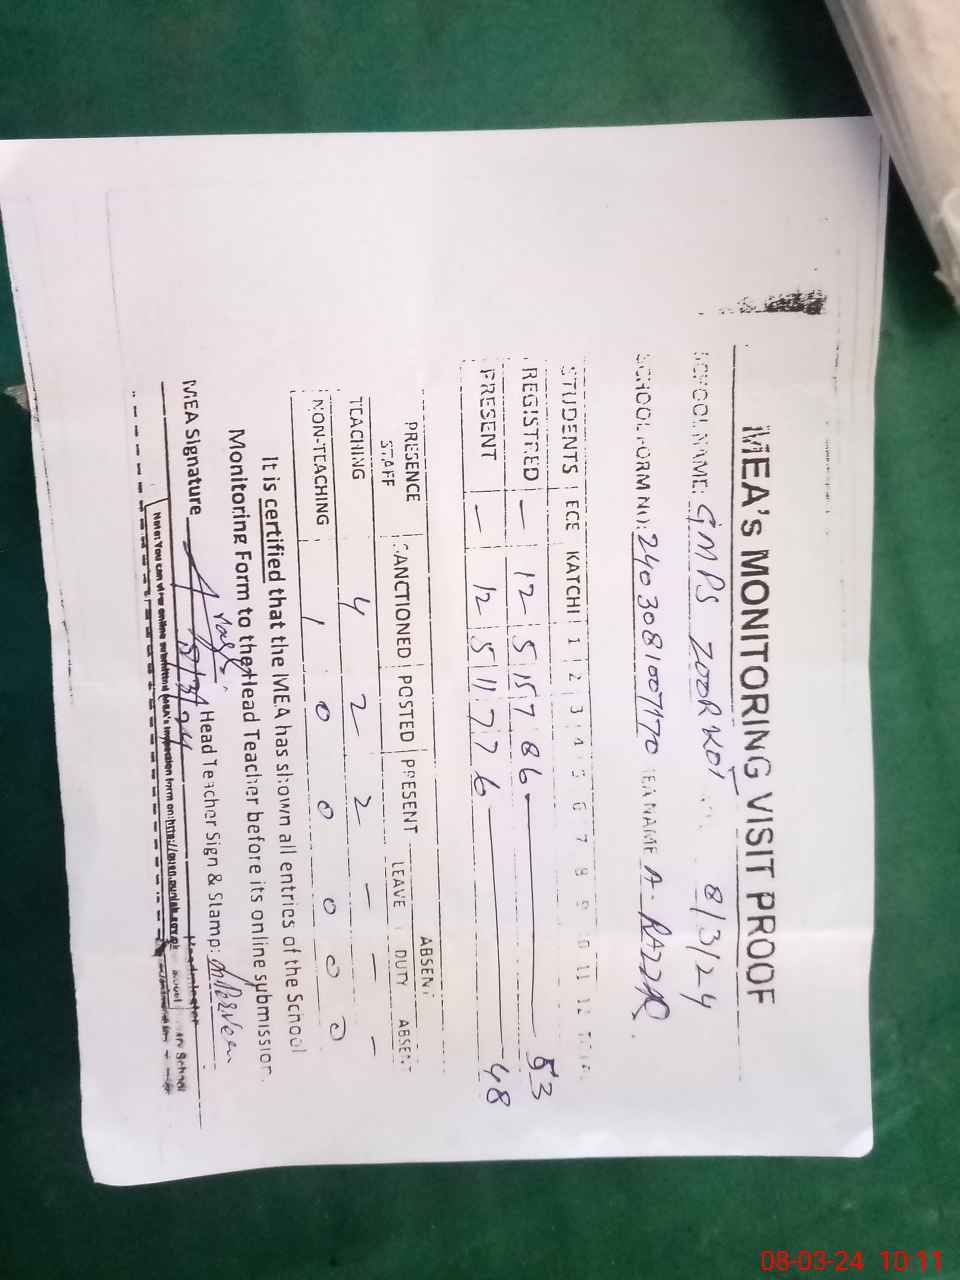 MEA's MONITORING VISIT PROOF
SCHOOL NAME: GMPS ZOOR KOT 8/3/24
SCHOOL FORM NO: MEA NAME A. RAZZAQ
STUDENTS ECE KATCHI 1 2 3 4 5 6 7 8 9 10 11 12 TOTAL
REGISTRED - 12 5 15 7 8 6 53
PRESENT - 12 5 11 7 7 6 48
PRESENCE ABSENT
STAFF SANCTIONED POSTED PRESENT LEAVE DUTY ABSENT
TEACHING 4 2 2 - - -
NON-TEACHING 1 0 0 0 0 0
It is certified that the MEA has shown all entries of the School
Monitoring Form to the Head Teacher before its online submission.
MEA Signature Head Teacher Sign & Stamp:
8/3/24
Headmaster
Note: You can view online submitted MEA's inspection form on:
08-03-24 10:11